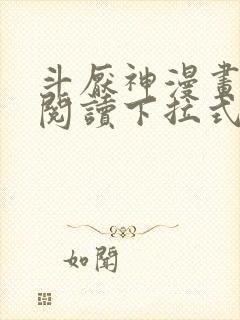 斗厭神漫畫
閱讀下拉式
如聞